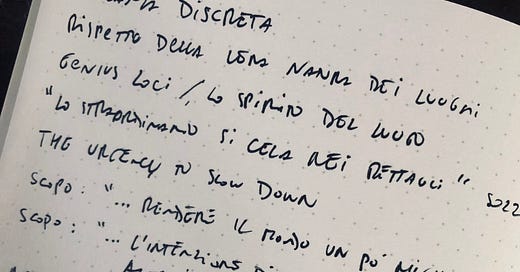 DISCRETA
RISPETTO DELLA VERA NATURA DEI LUOGHI
GENIUS LOCI / LO SPIRITO DEL LUOGO
"LO STRAORDINARIO SI CELA NEI DETTAGLI"
THE URGENCY TO SLOW DOWN
SCOPO: "... RENDERE IL MONDO UN PO'
SCOPO: "... L'INTENZIONE